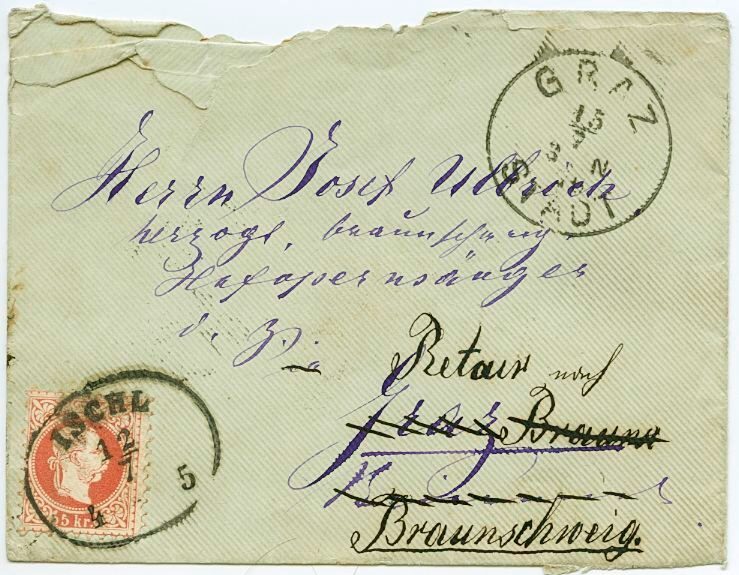 GRAZ
STADT
Herrn Josef Ulbrich
herzogl. braunschweig.
Hofopernsänger
d. Z. in
Retour nach
Graz Braunsc
Braunschweig.
ISCHL
12
7
4 5
5 kr